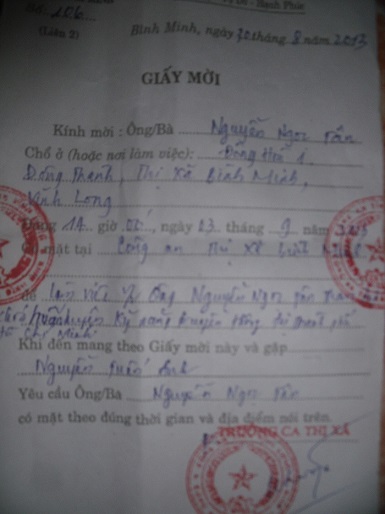 Số: 206
(Liên 2)
Bình Minh, ngày 20 tháng 8 năm 2013
GIẤY MỜI
Kính mời : Ông/Bà Nguyễn Ngọc Tân
Chỗ ở (hoặc nơi làm việc):
Đông Thành, Thị Xã Bình Minh,
Vĩnh Long
14 giờ 00, ngày 23 tháng năm 2013
Có mặt tại Công an Thị Xã Bình Minh
Để làm việc Ông Nguyễn Ngọc Tân
Kỹ năng truyền thông tại thành phố
Hồ Chí Minh
Khi đến mang theo Giấy mời này và gặp
Nguyễn Tuấn Anh
Yêu cầu Ông/Bà Nguyễn Ngọc Tân
có mặt theo đúng thời gian và địa điểm nói trên.
TRƯỞNG CA THỊ XÃ